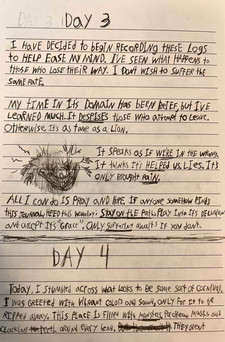 DAY 3
I HAVE DECIDED TO BEGIN RECORDING THESE LOGS
TO HELP EASE MY MIND. I'VE SEEN WHAT HAPPENS TO
THOSE WHO LOSE THEIR WAY. I DON'T WISH TO SUFFER THE
SAME FATE.
MY TIME IN ITS DOMAIN HAS BEEN BRIEF, BUT I'VE
LEARNED MUCH. IT DESPISES THOSE WHO ATTEMPT TO LEAVE.
OTHERWISE, IT'S AS TAME AS A LION.
IT SPEAKS AS IF WE'RE IN THE WRONG.
IT THINKS IT'S HELPED US. LIES. IT'S
ONLY BROUGHT PAIN.
ALL I CAN DO IS PRAY AND HIDE. IF ANYONE SOMEHOW FINDS
THIS JOURNAL, HEED THIS WARNING: STAY ON THE PATH. PLAY INTO ITS DELUSION
AND ACCEPT ITS "GRACE". ONLY SUFFERING AWAITS IF YOU DON'T.
DAY 4
TODAY, I STUMBLED ACROSS WHAT LOOKS TO BE SOME SORT OF CARNIVAL.
I WAS GREETED WITH VIBRANT COLOR AND SOUND, ONLY FOR IT TO BE
RIPPED AWAY. THIS PLACE IS FILLED WITH MONSTERS, MASKS AND
AROUND EVERY TENT. THEY